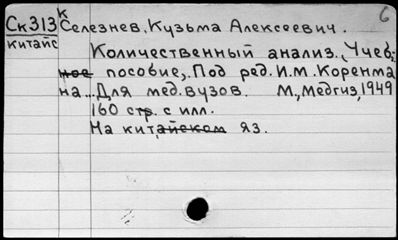 К 6
Ск313 Селезнев, Кузьма Алексеевич.
китайс
Количественный анализ. (Учеб;
ное пособие). Под ред. И.М. Коренма
на... Для мед. вузов. М., Медгиз, 1949
160 стр. с илл.
На китайском яз.